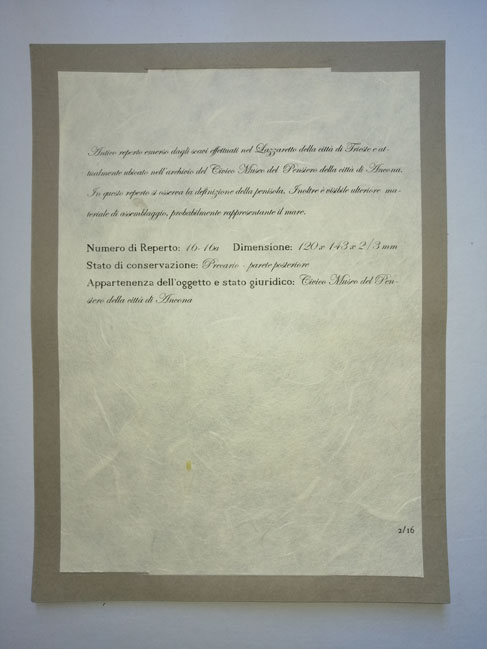 Antico reperto emerso dagli scavi effettuati nel Lazzaretto della città di Trieste e at-
tualmente ubicato nell'archivio del Civico Museo del Pensiero della città di Ancona.
In questo reperto si osserva la definizione della penisola. Inoltre è visibile ulteriore ma-
teriale di assemblaggio, probabilmente rappresentante il mare.
Numero di Reperto: 16-16a Dimensione: 120 x 143 x 2/3 mm
Stato di conservazione: Precario - parete posteriore
Appartenenza dell'oggetto e stato giuridico: Civico Museo del Pen-
siero della città di Ancona
2/16